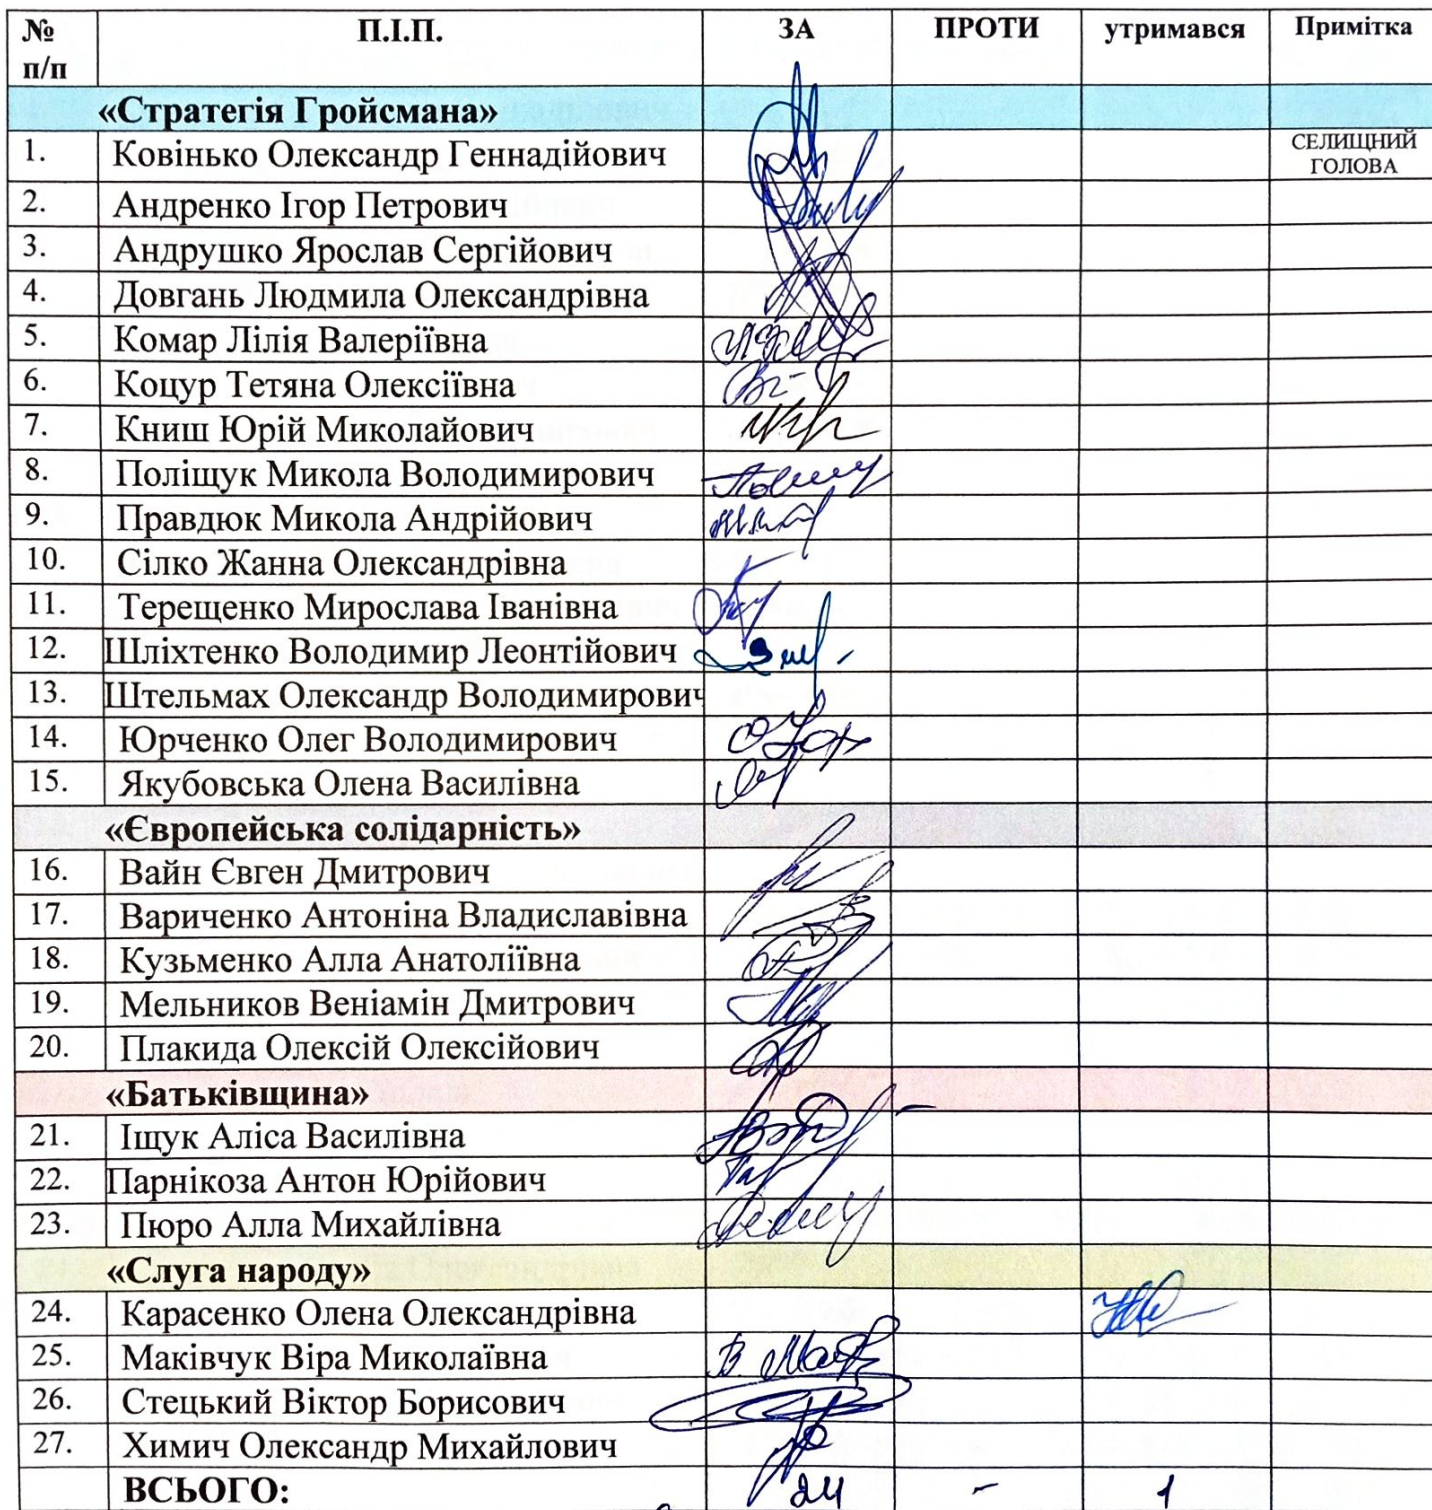 № п/п П.І.П. ЗА ПРОТИ утримався Примітка
«Стратегія Гройсмана»
1. Ковінько Олександр Геннадійович СЕЛИЩНИЙ ГОЛОВА
2. Андренко Ігор Петрович
3. Андрушко Ярослав Сергійович
4. Довгань Людмила Олександрівна
5. Комар Лілія Валеріївна
6. Коцур Тетяна Олексіївна
7. Книш Юрій Миколайович
8. Поліщук Микола Володимирович
9. Правдюк Микола Андрійович
10. Сілко Жанна Олександрівна
11. Терещенко Мирослава Іванівна
12. Шліхтенко Володимир Леонтійович
13. Штельмах Олександр Володимирович
14. Юрченко Олег Володимирович
15. Якубовська Олена Василівна
«Європейська солідарність»
16. Вайн Євген Дмитрович
17. Вариченко Антоніна Владиславівна
18. Кузьменко Алла Анатоліївна
19. Мельников Веніамін Дмитрович
20. Плакида Олексій Олексійович
«Батьківщина»
21. Іщук Аліса Василівна
22. Парнікоза Антон Юрійович
23. Пюро Алла Михайлівна
«Слуга народу»
24. Карасенко Олена Олександрівна
25. Маківчук Віра Миколаївна
26. Стецький Віктор Борисович
27. Химич Олександр Михайлович
ВСЬОГО: 24 - 1